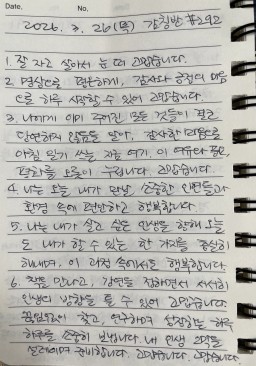 Date. No.
2026. 3. 26(목) 감칭반 #292
1. 잘 자고 살아서 눈 떠 고맙습니다.
2. 명상으로 편안하게, 감사와 긍정의 마음
으로 하루 시작할 수 있어 고맙습니다.
3. 나에게 이미 주어진 모든 것들이 결코
당연하지 않음을 알아, 감사한 마음으로
아침 일기 쓰는 지금 여기, 이 여유와 풍요,
평화를 오늘이 누립니다. 고맙습니다.
4. 나는 오늘 내가 만날 소중한 인연들과
환경 속에 편안하고 행복합니다.
5. 나는 내가 살고 싶은 인생을 향해 오늘
도 내가 할 수 있는 한 가지를 충실히
해내며, 이 과정 속에서 행복합니다.
6. 책을 만나고, 강연을 접하면서 서서히
인생의 방향을 틀 수 있어 고맙습니다.
끊임없이 찾고, 연구하며 성장하는 하루
하루를 소중히 보냅니다. 내 인생 2막을
설레이며 준비합니다. 고맙습니다. 고맙습니다.